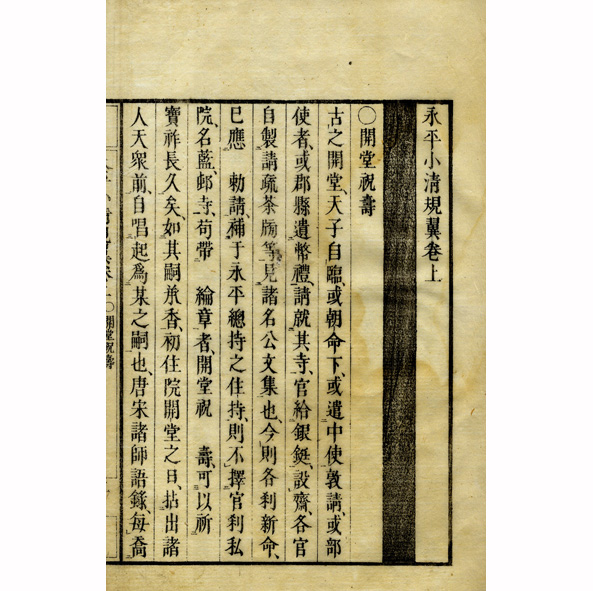 永平小清規翼卷上
〇開堂祝壽
古之開堂、天子自臨、或朝命下、或遣中使敦請、或部
使者、或郡縣遺幣禮、請就其寺、官給銀鋌、設齋、各官
自製請疏茶牓等、見諸名公文集也、今則各利新命、
已應　勅請、補于永平總持之住持、則不擇官利私
院、名藍郷寺、苟帶　綸章者、開堂祝　壽、可以祈
寶祚長久矣、如其嗣承香、初住院開堂之日、拈出諸
人天衆前、自唱起爲某之嗣也、唐宋諸師語錄、每喬
〇開堂祝壽